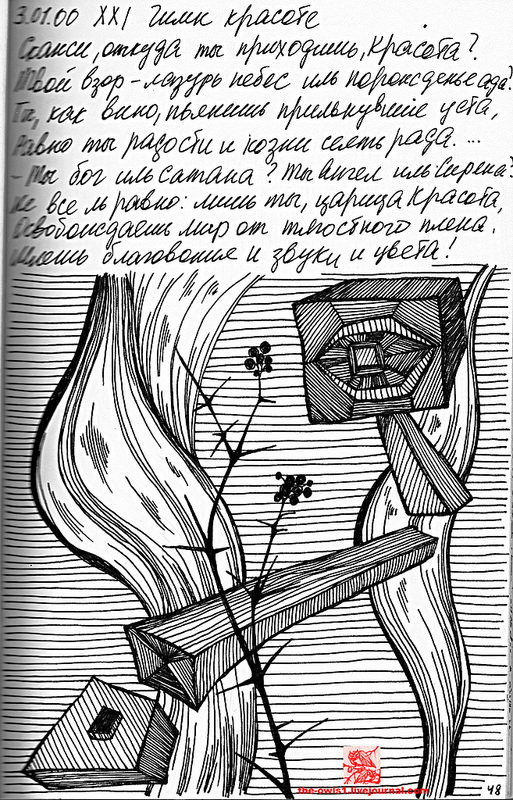 3.01.00 XXI Гимн красоте
Скажи, откуда ты приходишь, Красота?
Твой взор – лазурь небес иль порожденье ада?
Ты, как вино, пьянишь прильнувшие уста,
Равно ты радости и козни сеять рада. ...
- Ты бог иль сатана? Ты ангел иль Сирена?
Не все ль равно: лишь ты, царица Красота,
Освобождаешь мир от тягостного плена.
Шлешь благовония и звуки и цвета!
the-owls1.livejournal.com
48